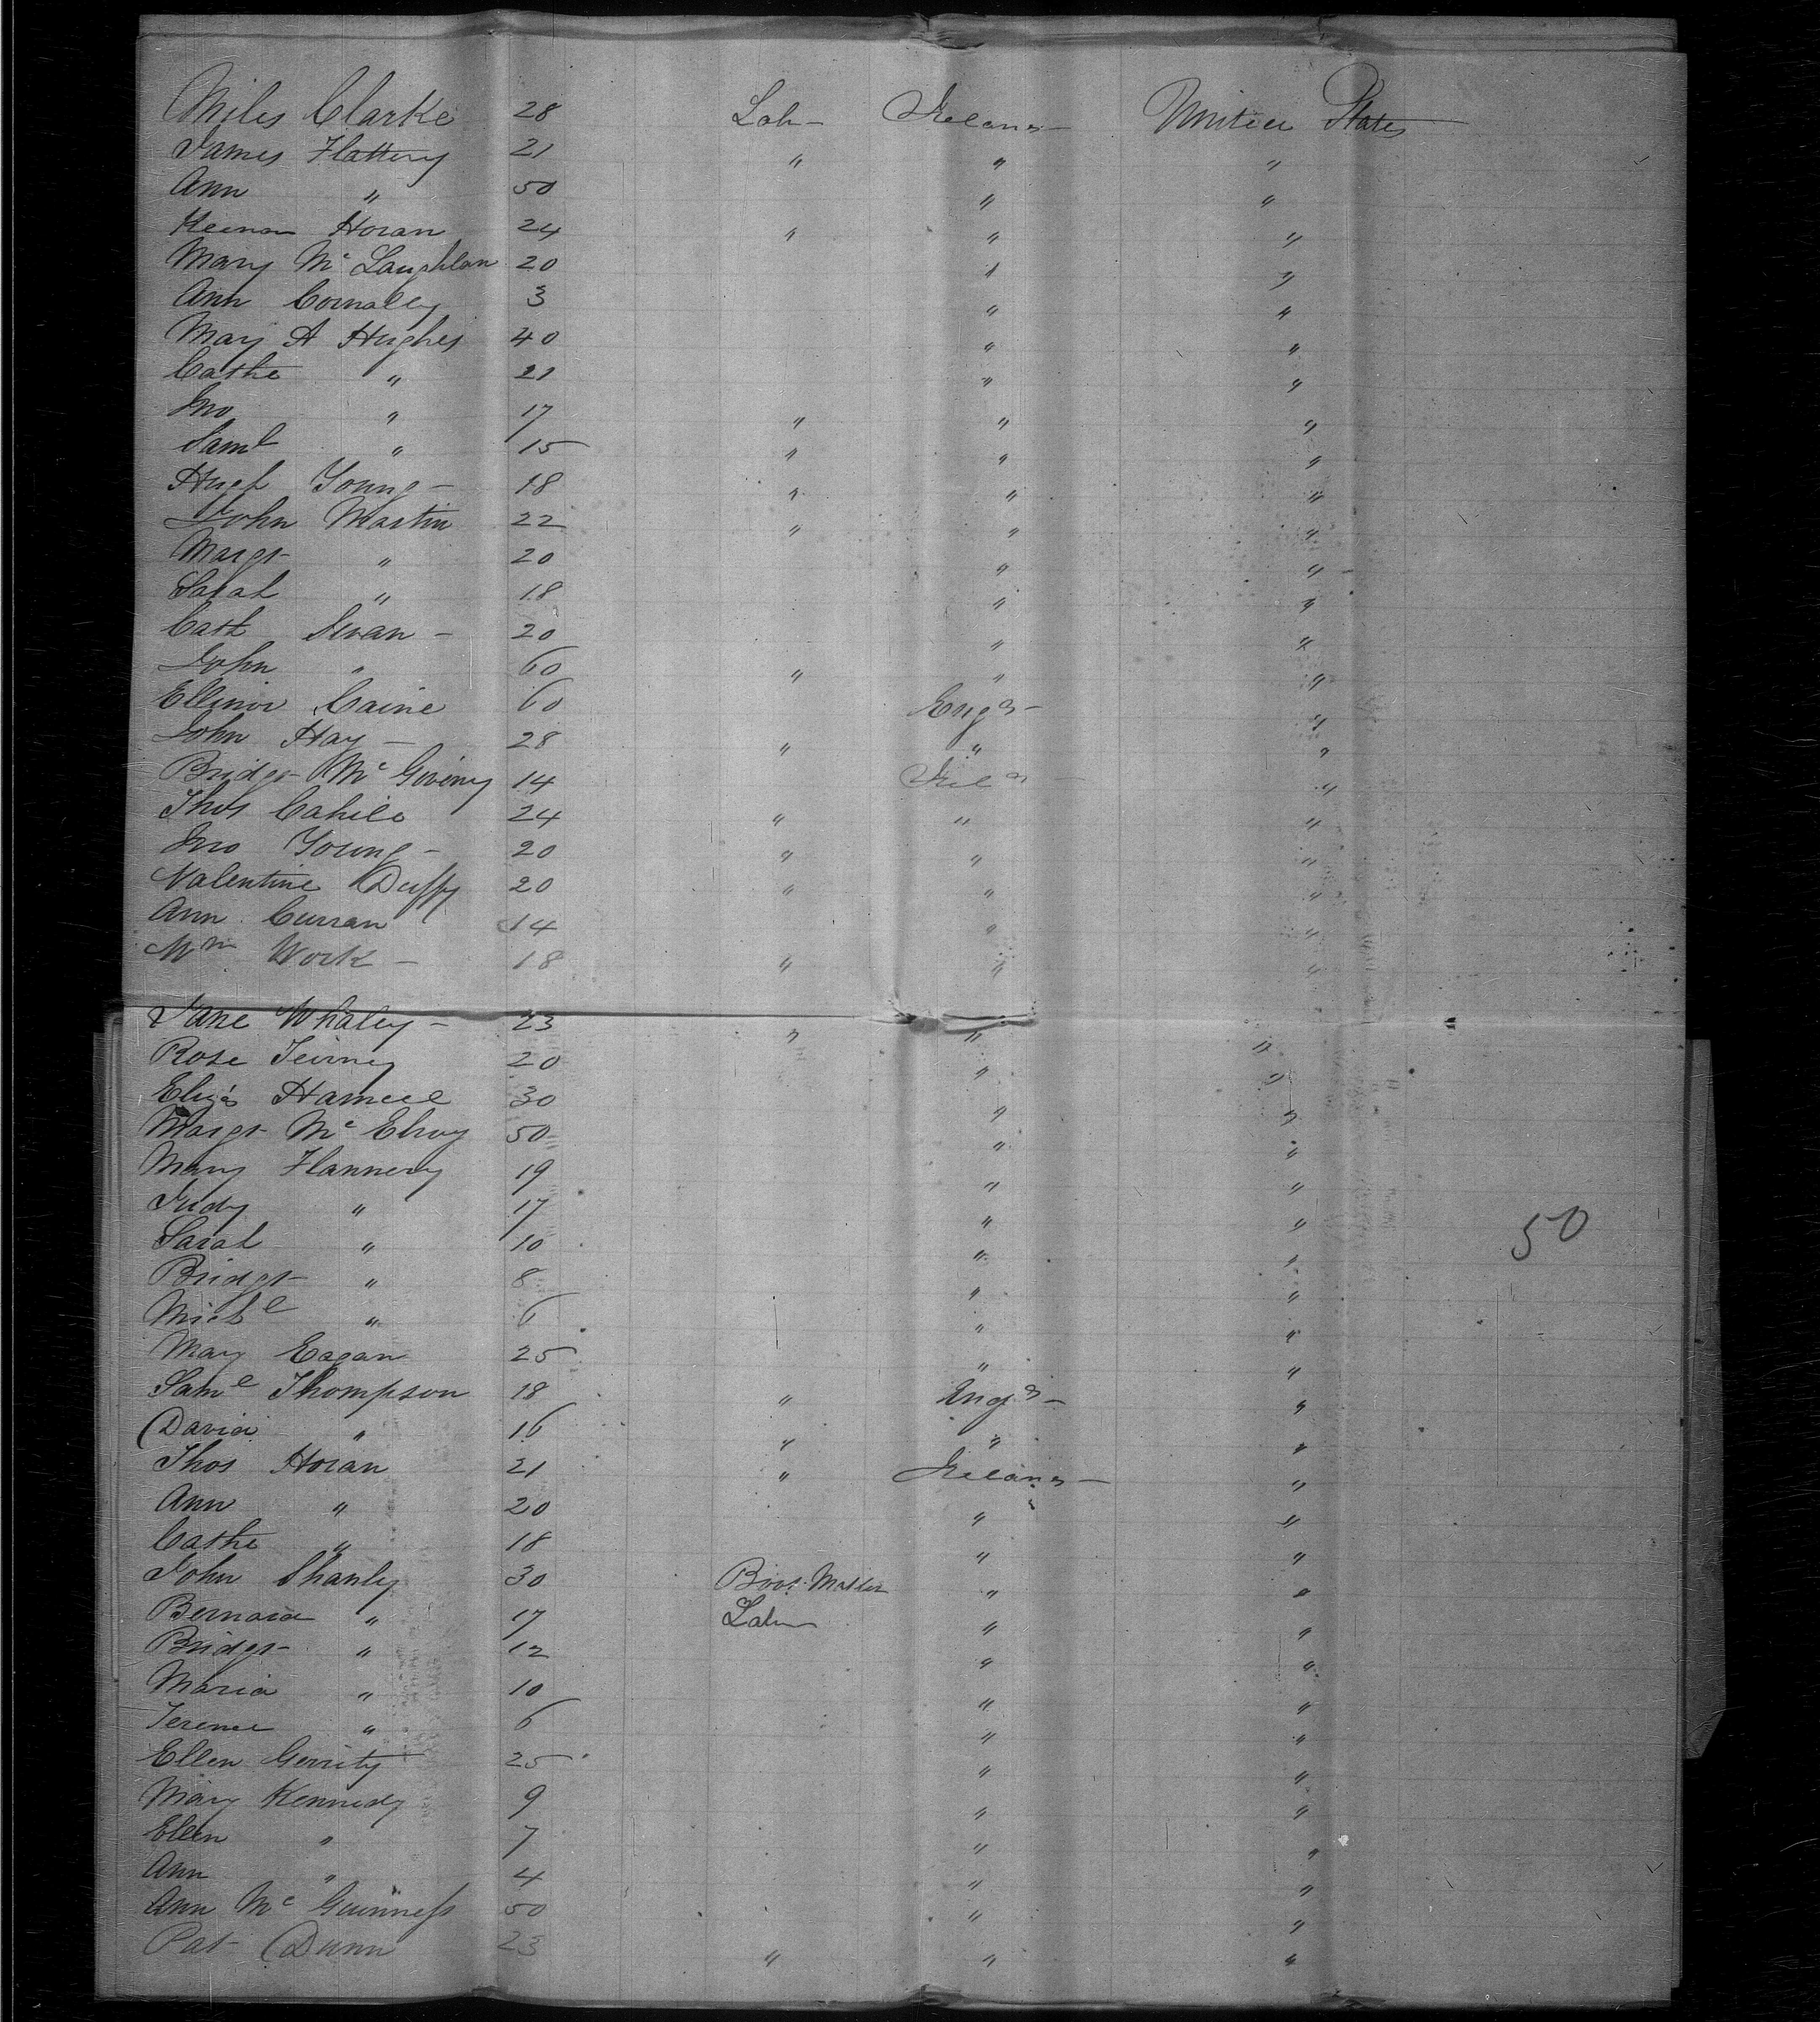 Miles Clarke 28 Labr Ireland United States
James Flattery 21 " " "
Ann " 50 " "
Keenan Horan 24 " " "
Mary McLaughlan 20 " "
Ann Connolly 3 " "
Mary A Hughes 40 " "
Cathe " 21 " "
Jno " 17 " " "
Saml " 15 " " "
Hugh Young 18 " " "
John Martin 22 " " "
Margt " 20 " "
Sarah " 18 " "
Cath 20 " "
John " 60 " " "
Ellinor Caine 60 Engd "
John Hay 28 " " "
Bridgt McGiveny 14 Ireld "
Thos Cahill 24 " " "
Jno Young 20 " " "
Valentine Duffy 20 " " "
Ann Curran 14 " "
Wm Work 18 " " "
Jane Whaley 23 " " "
Rose 20 " "
Eliza Hamill 30 " "
Margt McElroy 50 " "
Mary Flannery 19 " "
Judy " 17 " "
Sarah " 10 " "
50
Bridgt " 8 " "
Michl " 6 " "
Mary Eagan 25 " "
Saml Thompson 18 " Engd "
David " 16 " " "
Thos Horan 21 " Ireland "
Ann " 20 " "
Cathe " 18 " "
John Shanly 30 Boot Maker " "
Bernard " 17 Labr " "
Bridgt " 12 " "
Maria " 10 " "
Terence " 6 " "
Ellen Gerrity 25 " "
Mary Kennedy 9 " "
Ellen " 7 " "
Ann " 4 " "
Ann McGuinness 50 " "
Pat Dunn 23 " " "